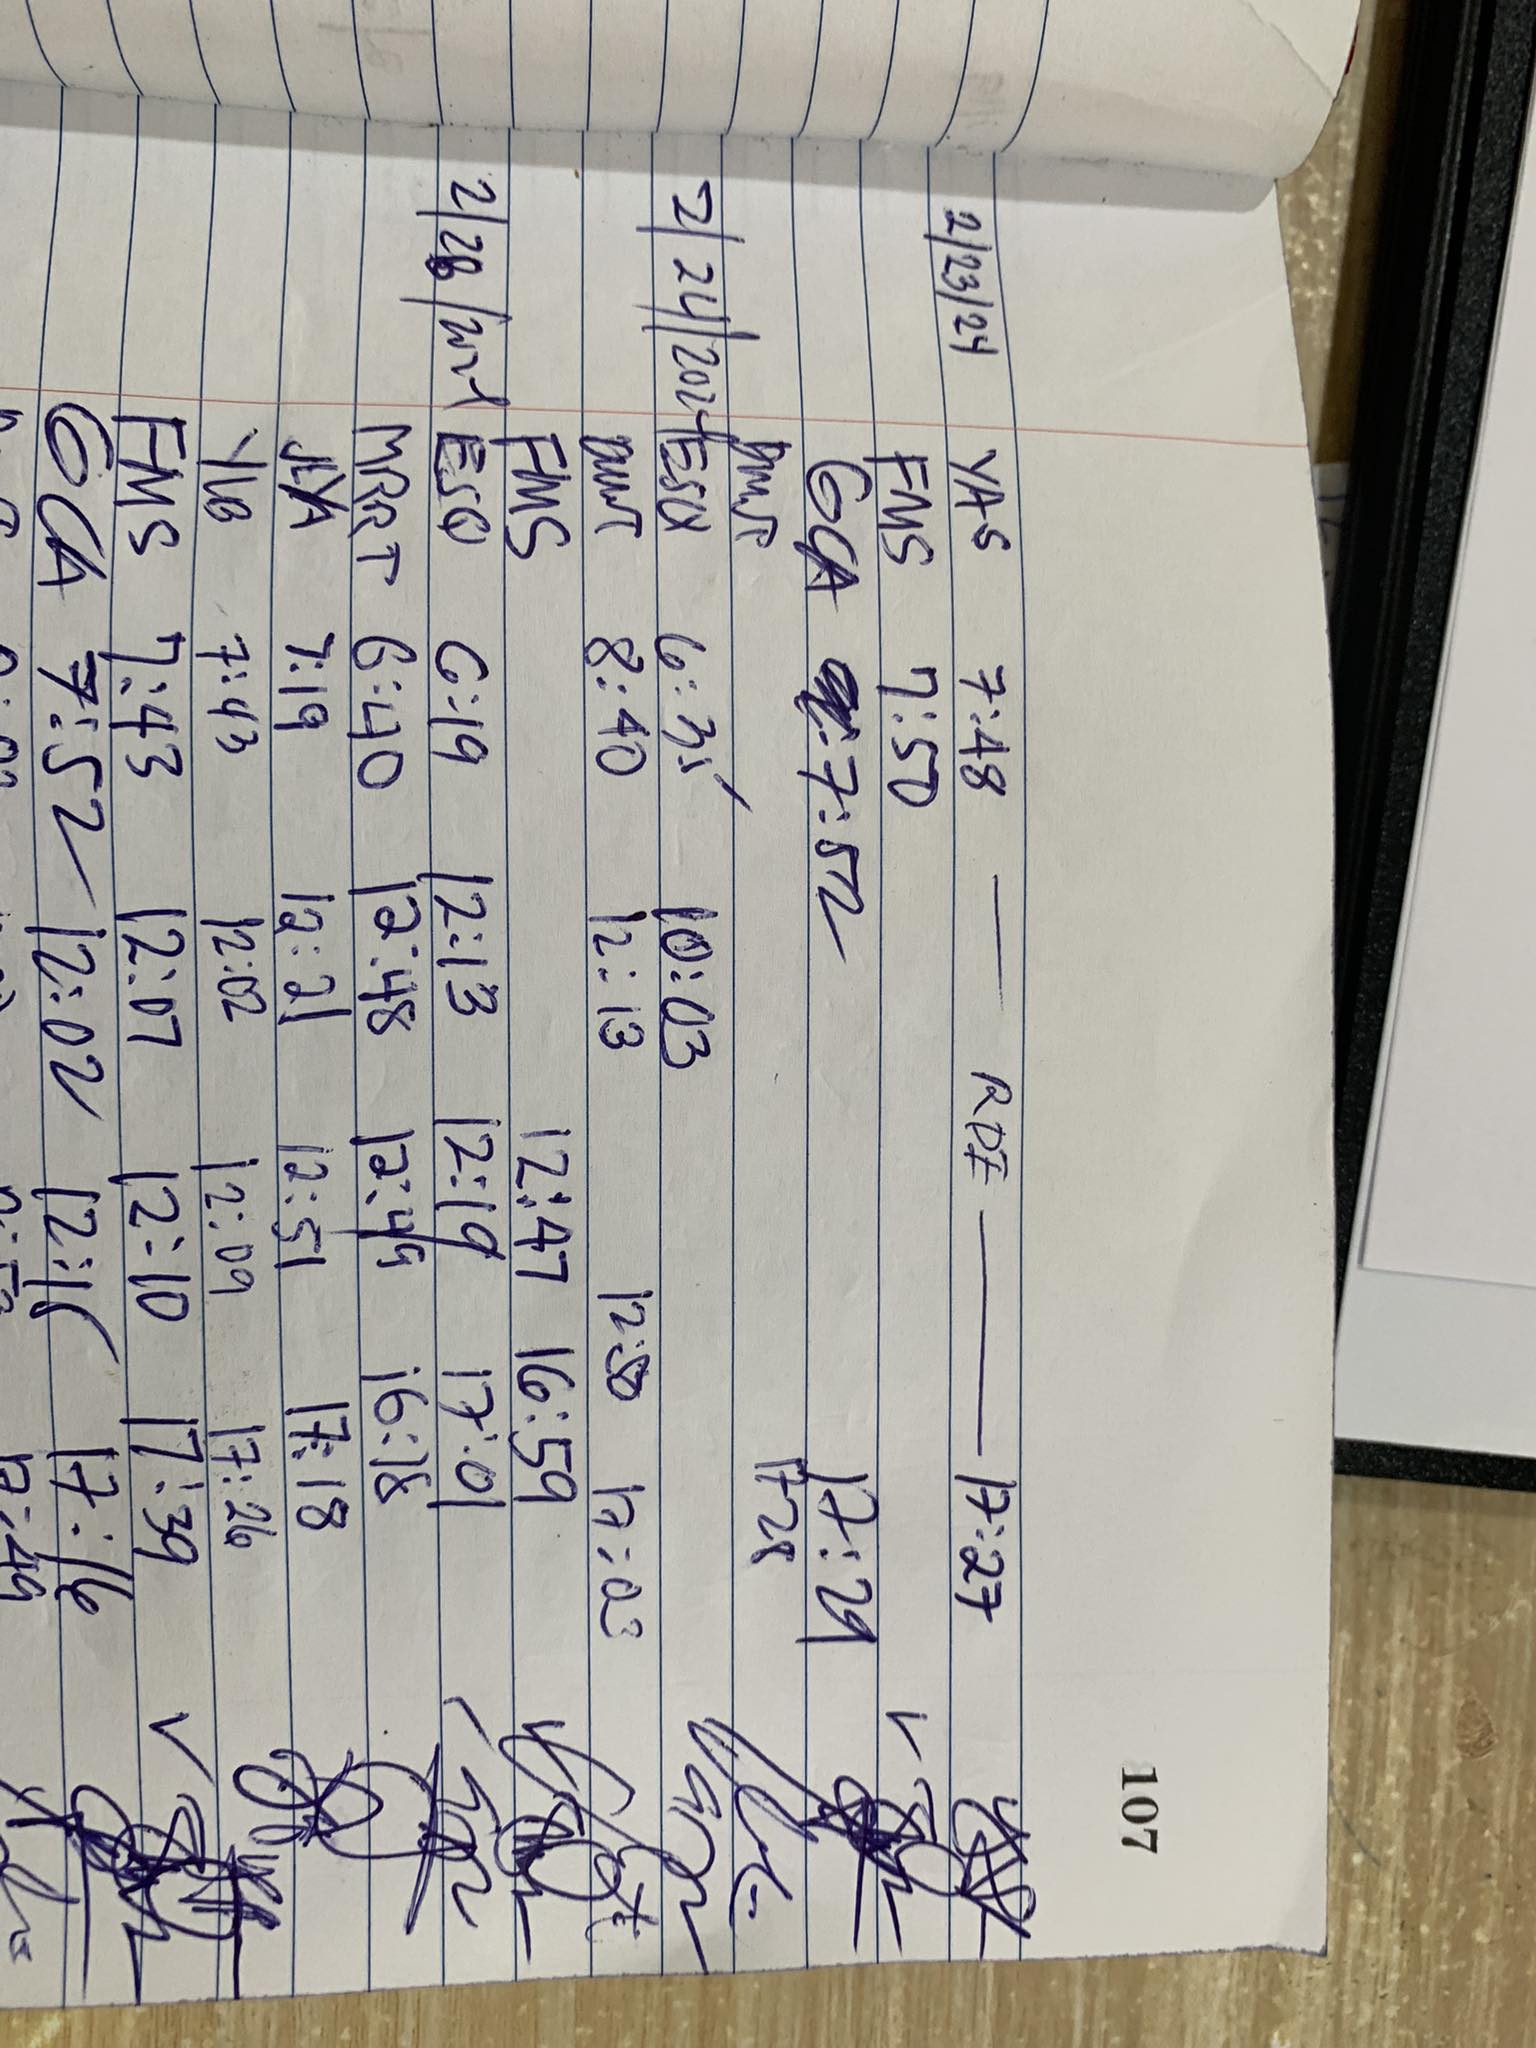 107
2/23/24 YAS 7:48 — RDF — 17:27
FMS 7:50
GCA 7:52 17:29
17:28
2/24/2024 ESQ 6:35 10:03
8:40 12:13 12:50 17:03
FMS 12:47 16:59
2/26/2024 ESQ 6:19 12:13 12:19 17:01
MRRT 6:40 12:48 12:49 16:18
JLVA 7:19 12:21 12:51 17:18
YLG 7:43 12:02 12:09 17:26
FMS 7:43 12:07 12:10 17:39
GCA 7:52 12:02 12:15 17:16